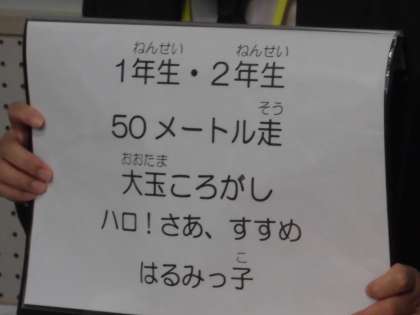 ねんせい ねんせい
1年生・2年生
そう
50メートル走
おおたま
大玉ころがし
ハロ!さあ、すすめ
こ
はるみっ子